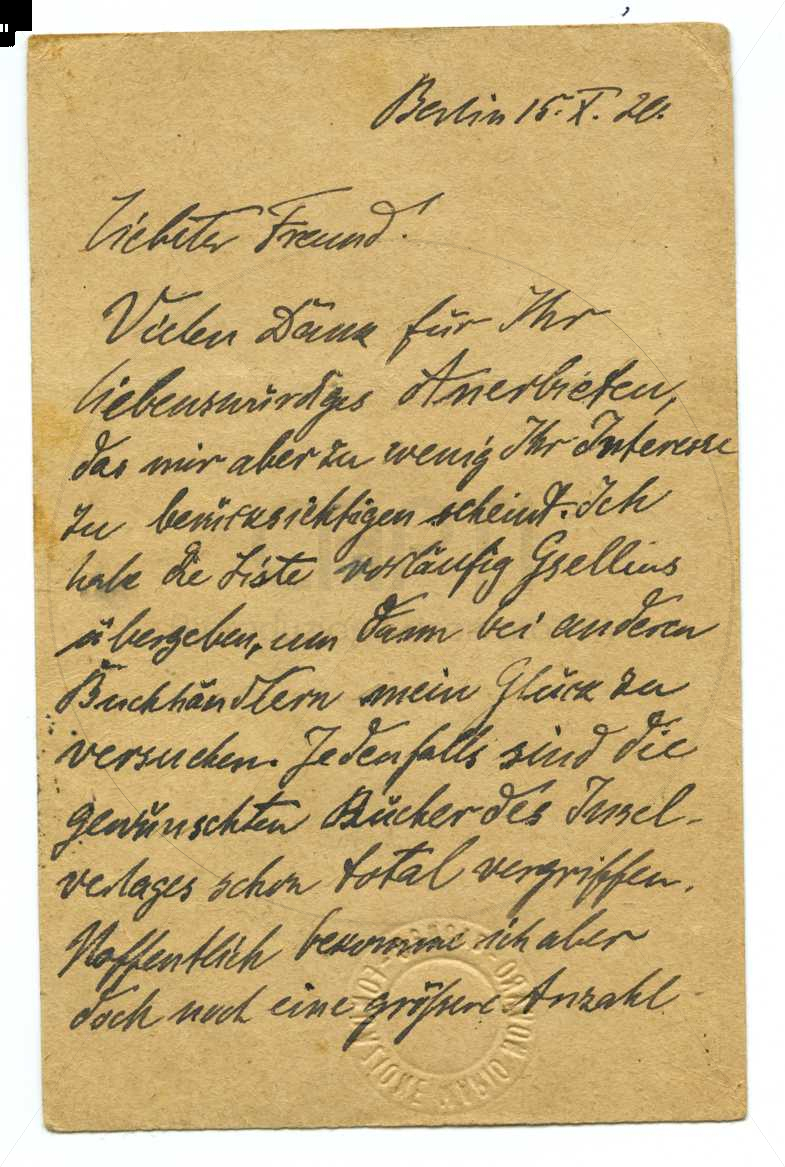 Berlin 15. X. 20.
Liebster Freund!
Vielen Dank für Ihr
liebenswürdiges Anerbieten,
das mir aber zu wenig Ihr Interesse
zu berücksichtigen scheint. Ich
habe die Liste vorläufig Gsellius
übergeben, um dann bei anderen
Buchhändlern mein Glück zu
versuchen. Jedenfalls sind die
gewünschten Bücher des Insel-
verlages schon total vergriffen.
Hoffentlich bekomme ich aber
doch noch eine größere Anzahl